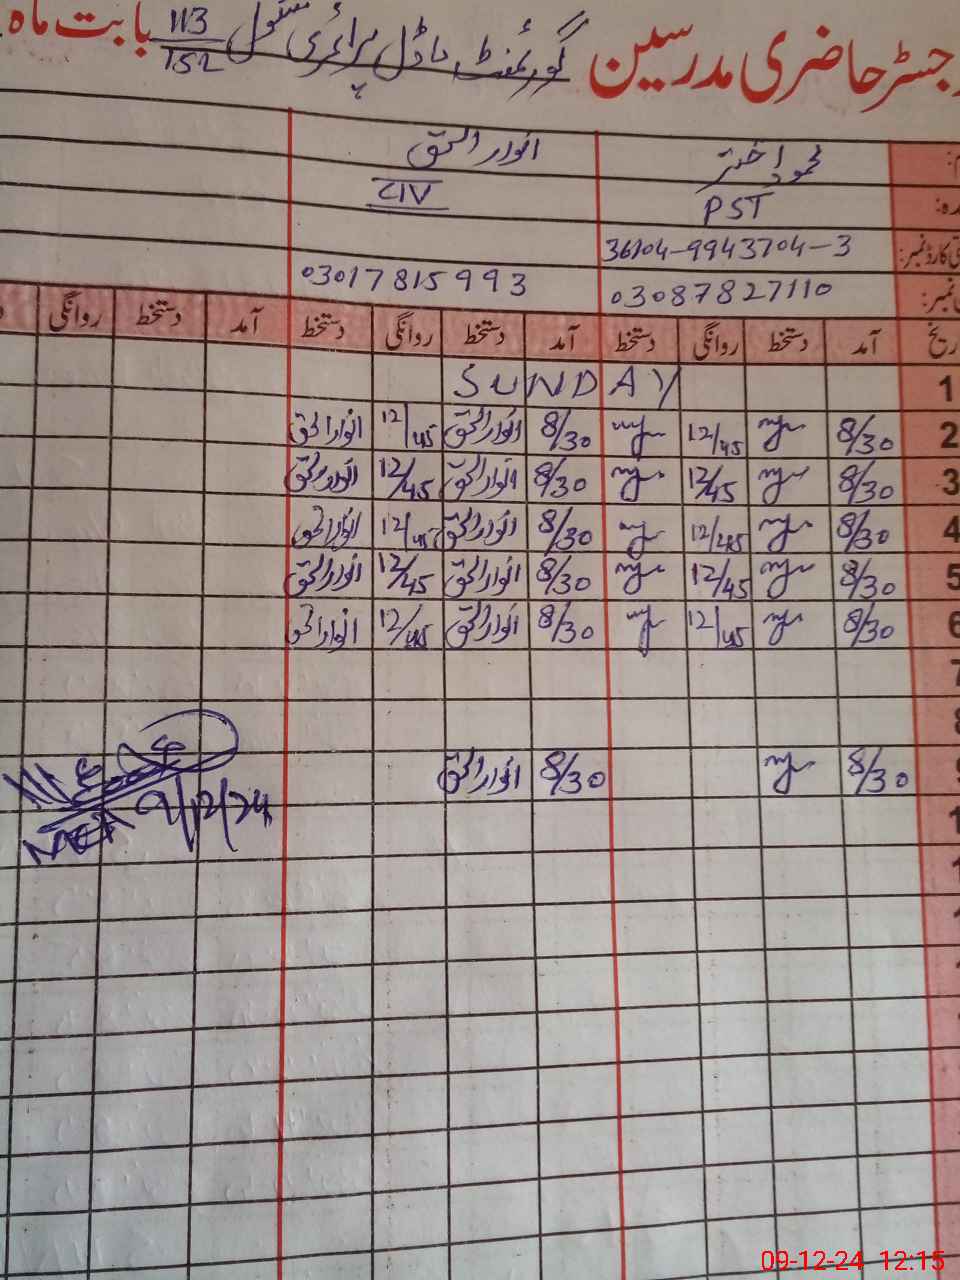 رجسٹر حاضری مدرسین گورنمنٹ ماڈل پرائمری سکول 113/152 بابت ماہ
محمود اختر انوار الحق
PST CIV
36104-9943704-3
03087827110 03017815993
آمد دستخط روانگی دستخط آمد دستخط روانگی دستخط آمد دستخط روانگی
1 SUNDAY
2 8/30 12/45 8/30 انوار الحق 12/45 انوار الحق
3 8/30 12/45 8/30 انوار الحق 12/45 انوار الحق
4 8/30 12/45 8/30 انوار الحق 12/45 انوار الحق
5 8/30 12/45 8/30 انوار الحق 12/45 انوار الحق
6 8/30 12/45 8/30 انوار الحق 12/45 انوار الحق
7
8
8/30 8/30 انوار الحق
9/12/24
09-12-24 12:15